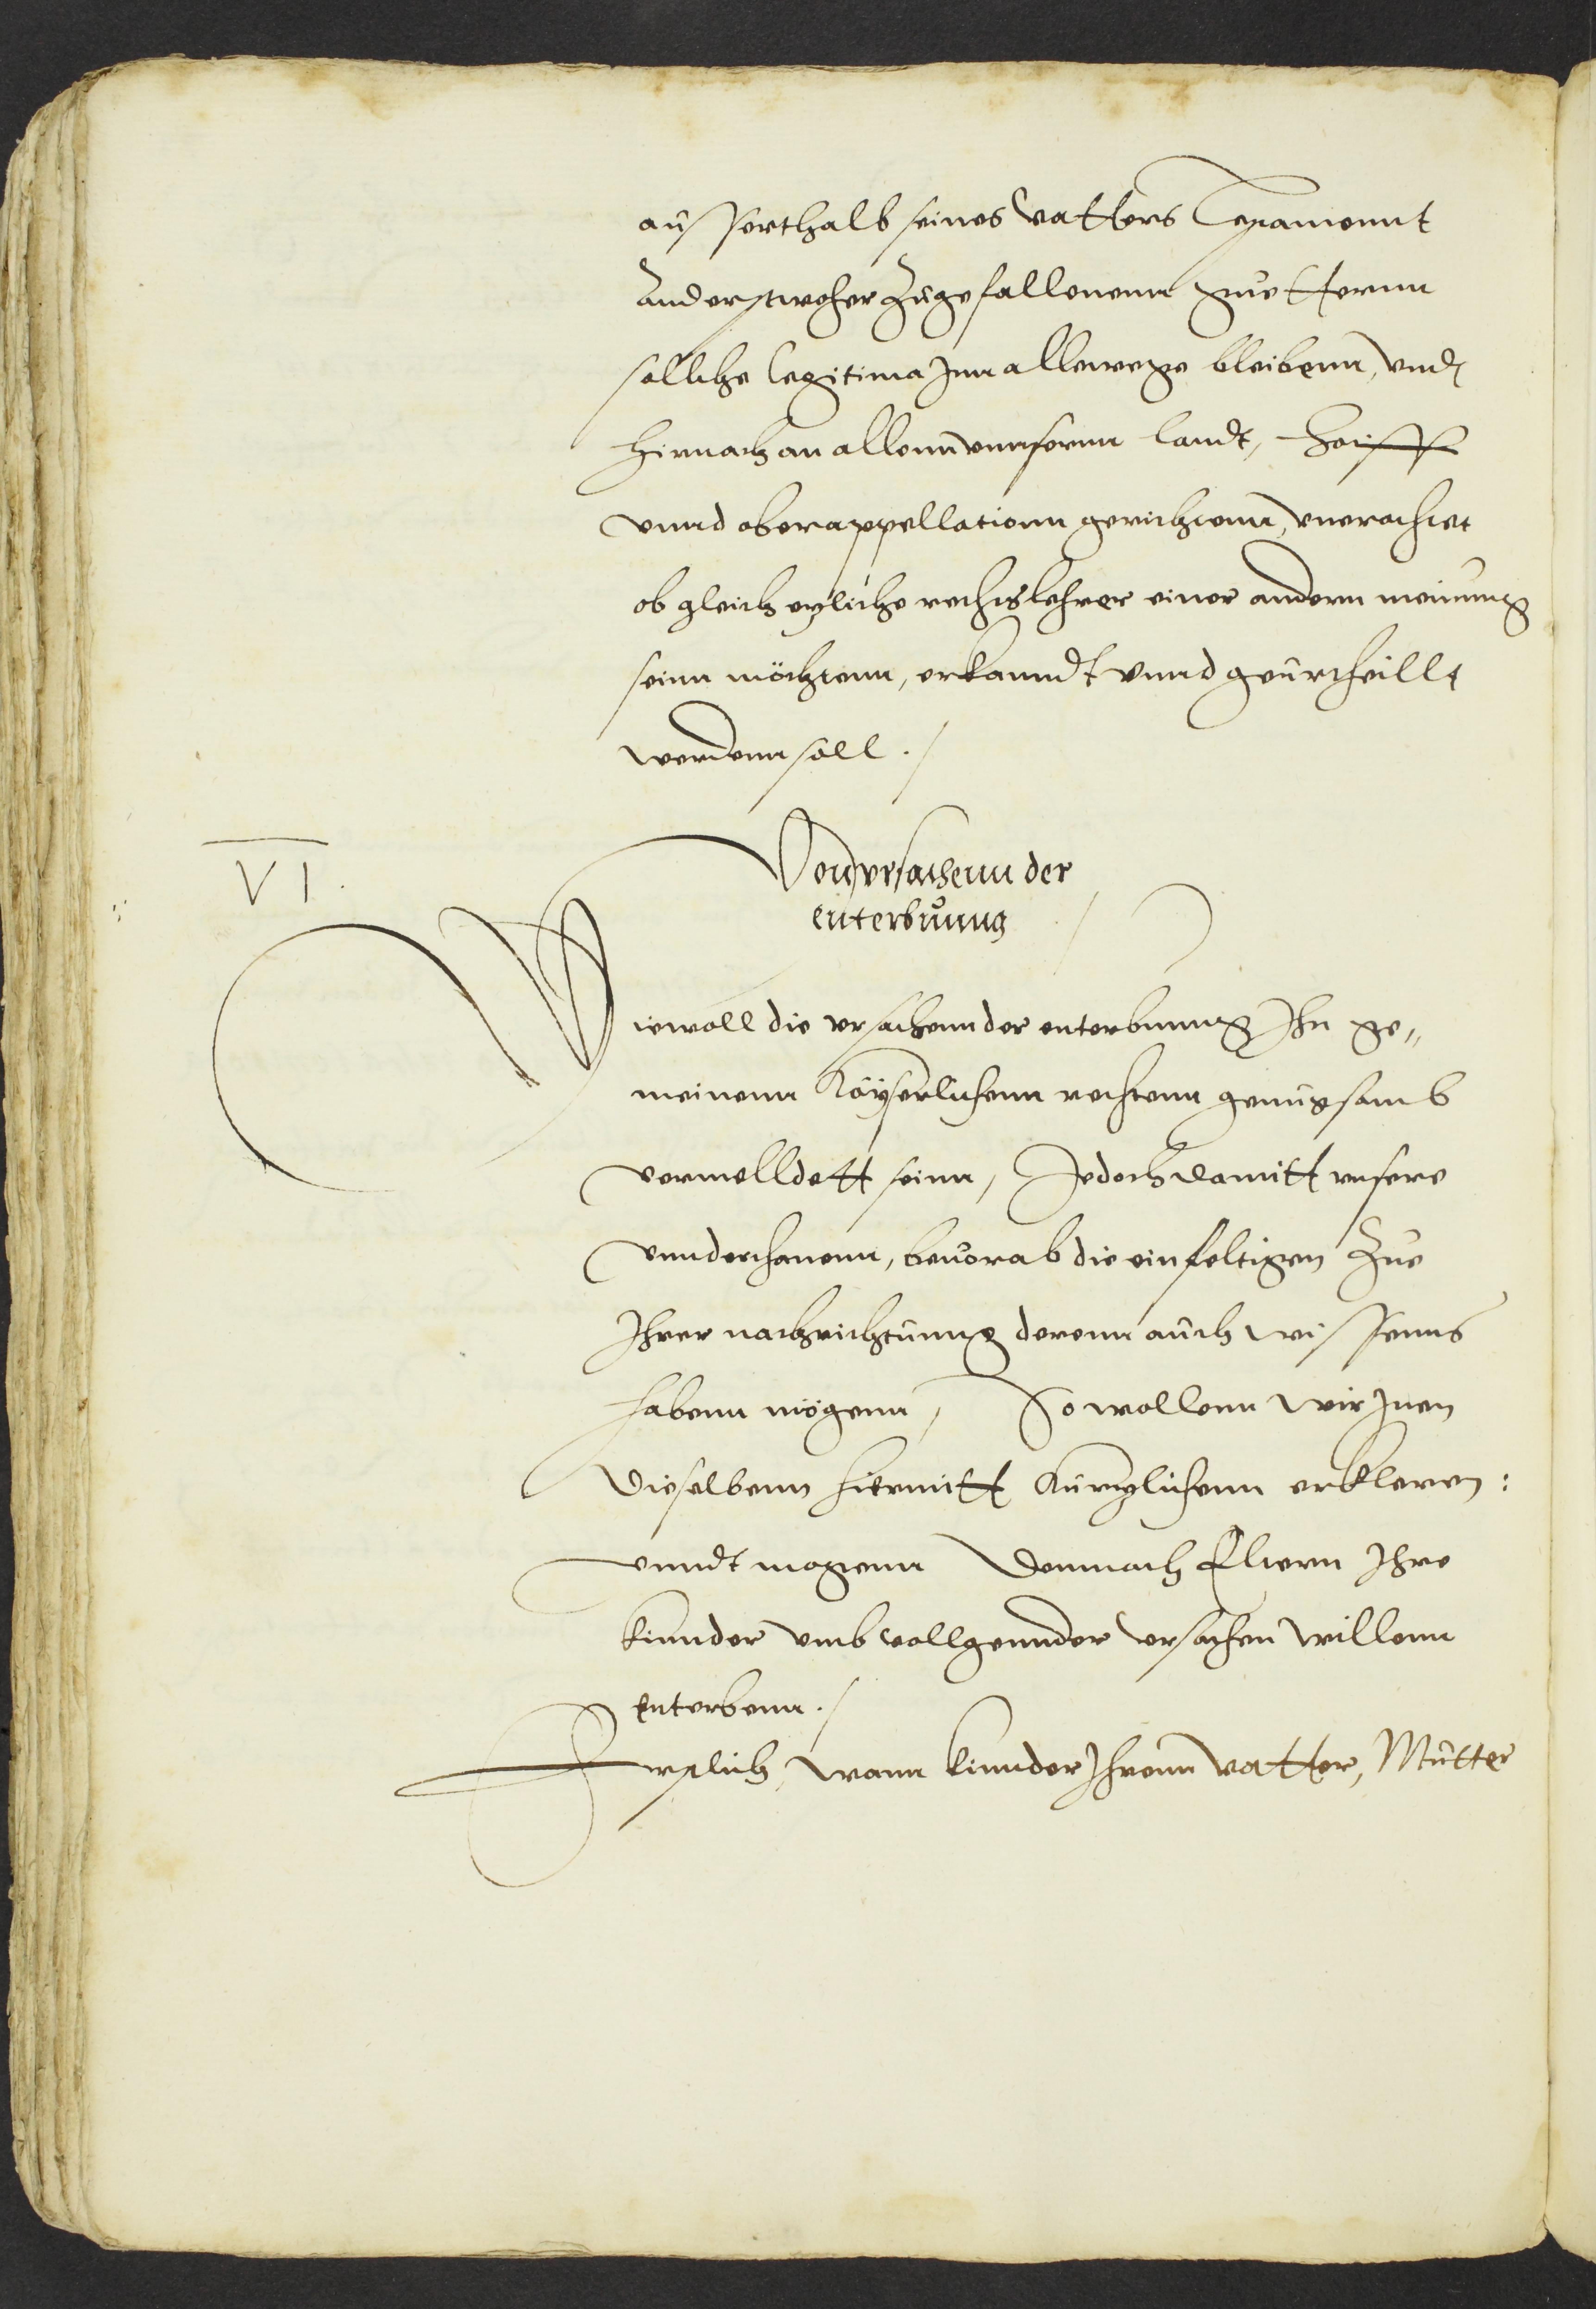 ausserthalb seines vatters Testamennt
anderstwoher zugefallenenn guetternn
solliche legitima Jnn allewege bleibenn, vnd
hirnach an allenn vnnsernn landt, Hoiff
vnnd oberappellationn gerichtenn, vnerachtet
ob gleich etzliche rechtslehrer einer andern meinung
seinn möchtenn, erkanndt vnnd geurtheillt
werdenn soll ./
VI.
Von vrsachenn der
enterbunng ./
Wiewoll die vrsachenn der enterbunng Jhn ge„
meinenn Käyserlichenn rechtenn genugsamb
vermelldett seinn, Jedoch damitt vnsere
vnnderthanenn, beuorab die einfeltigen zue
Jhrer nachrichtunng derenn auch wissenns
habenn mögenn, So wollenn wir Jnen
dieselbenn hiermitt Kurtzlichenn erkleren:
vnndt mogenn demnach Eltern Jhre
kinnder vmb vollgennder vrsachen willenn
enterbenn ./
Erstlich, wann kinnder Jhrenn vatter, Mutter